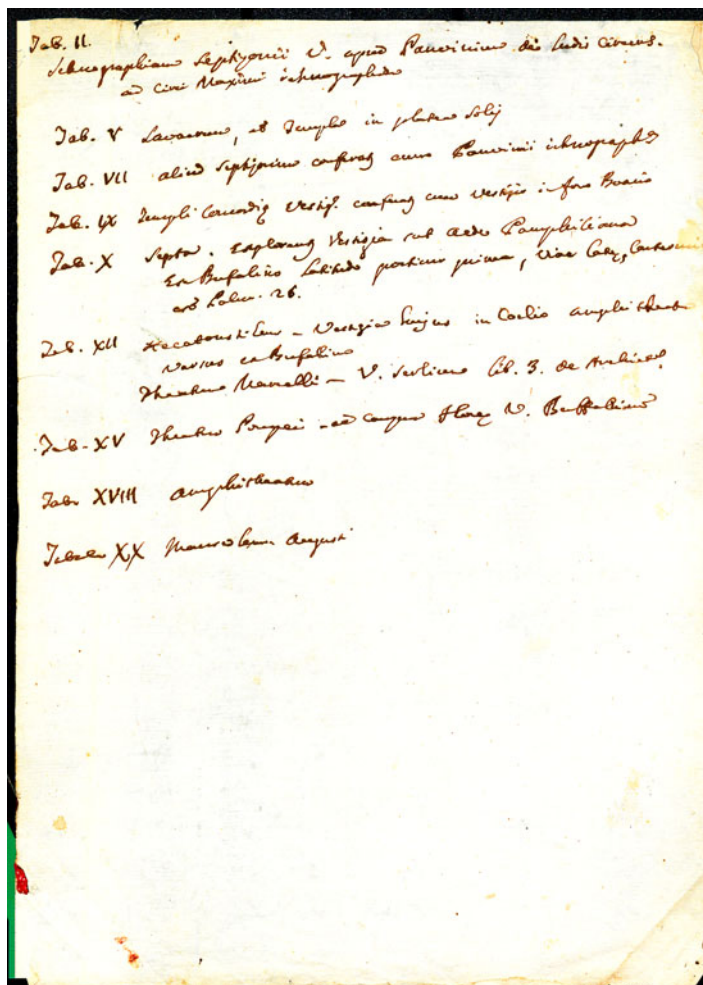 Tab. II.
Ichnographiam Septizonii V. apud Panvinium de Ludis Circens.
ad Circi Maximi ichnographiam
Tab. V Lavacrum, et Templo in platea
Tab. VII aliud Septizonium cum Panvinii ichnographia
Tab. IX Templi Concordię Vestig. cum Vestigio in foro Boario
Tab. X Septa. Vestigia sub aede Pamphiliana
Ex Bufalino Latitudo porticus prima, viae
26.
Tab. XII Hecatonstilum – Vestigia hujus in Coelio amphitheat
versus ex Bufalino
Theatrum Marcelli – V. Serlium lib. 3. de
Tab. XV Theatro Pompeii – ad campum Florę V. Buffalinum
Tab. XVIII Amphitheatrum
Tabula XX Mausoleum Augusti